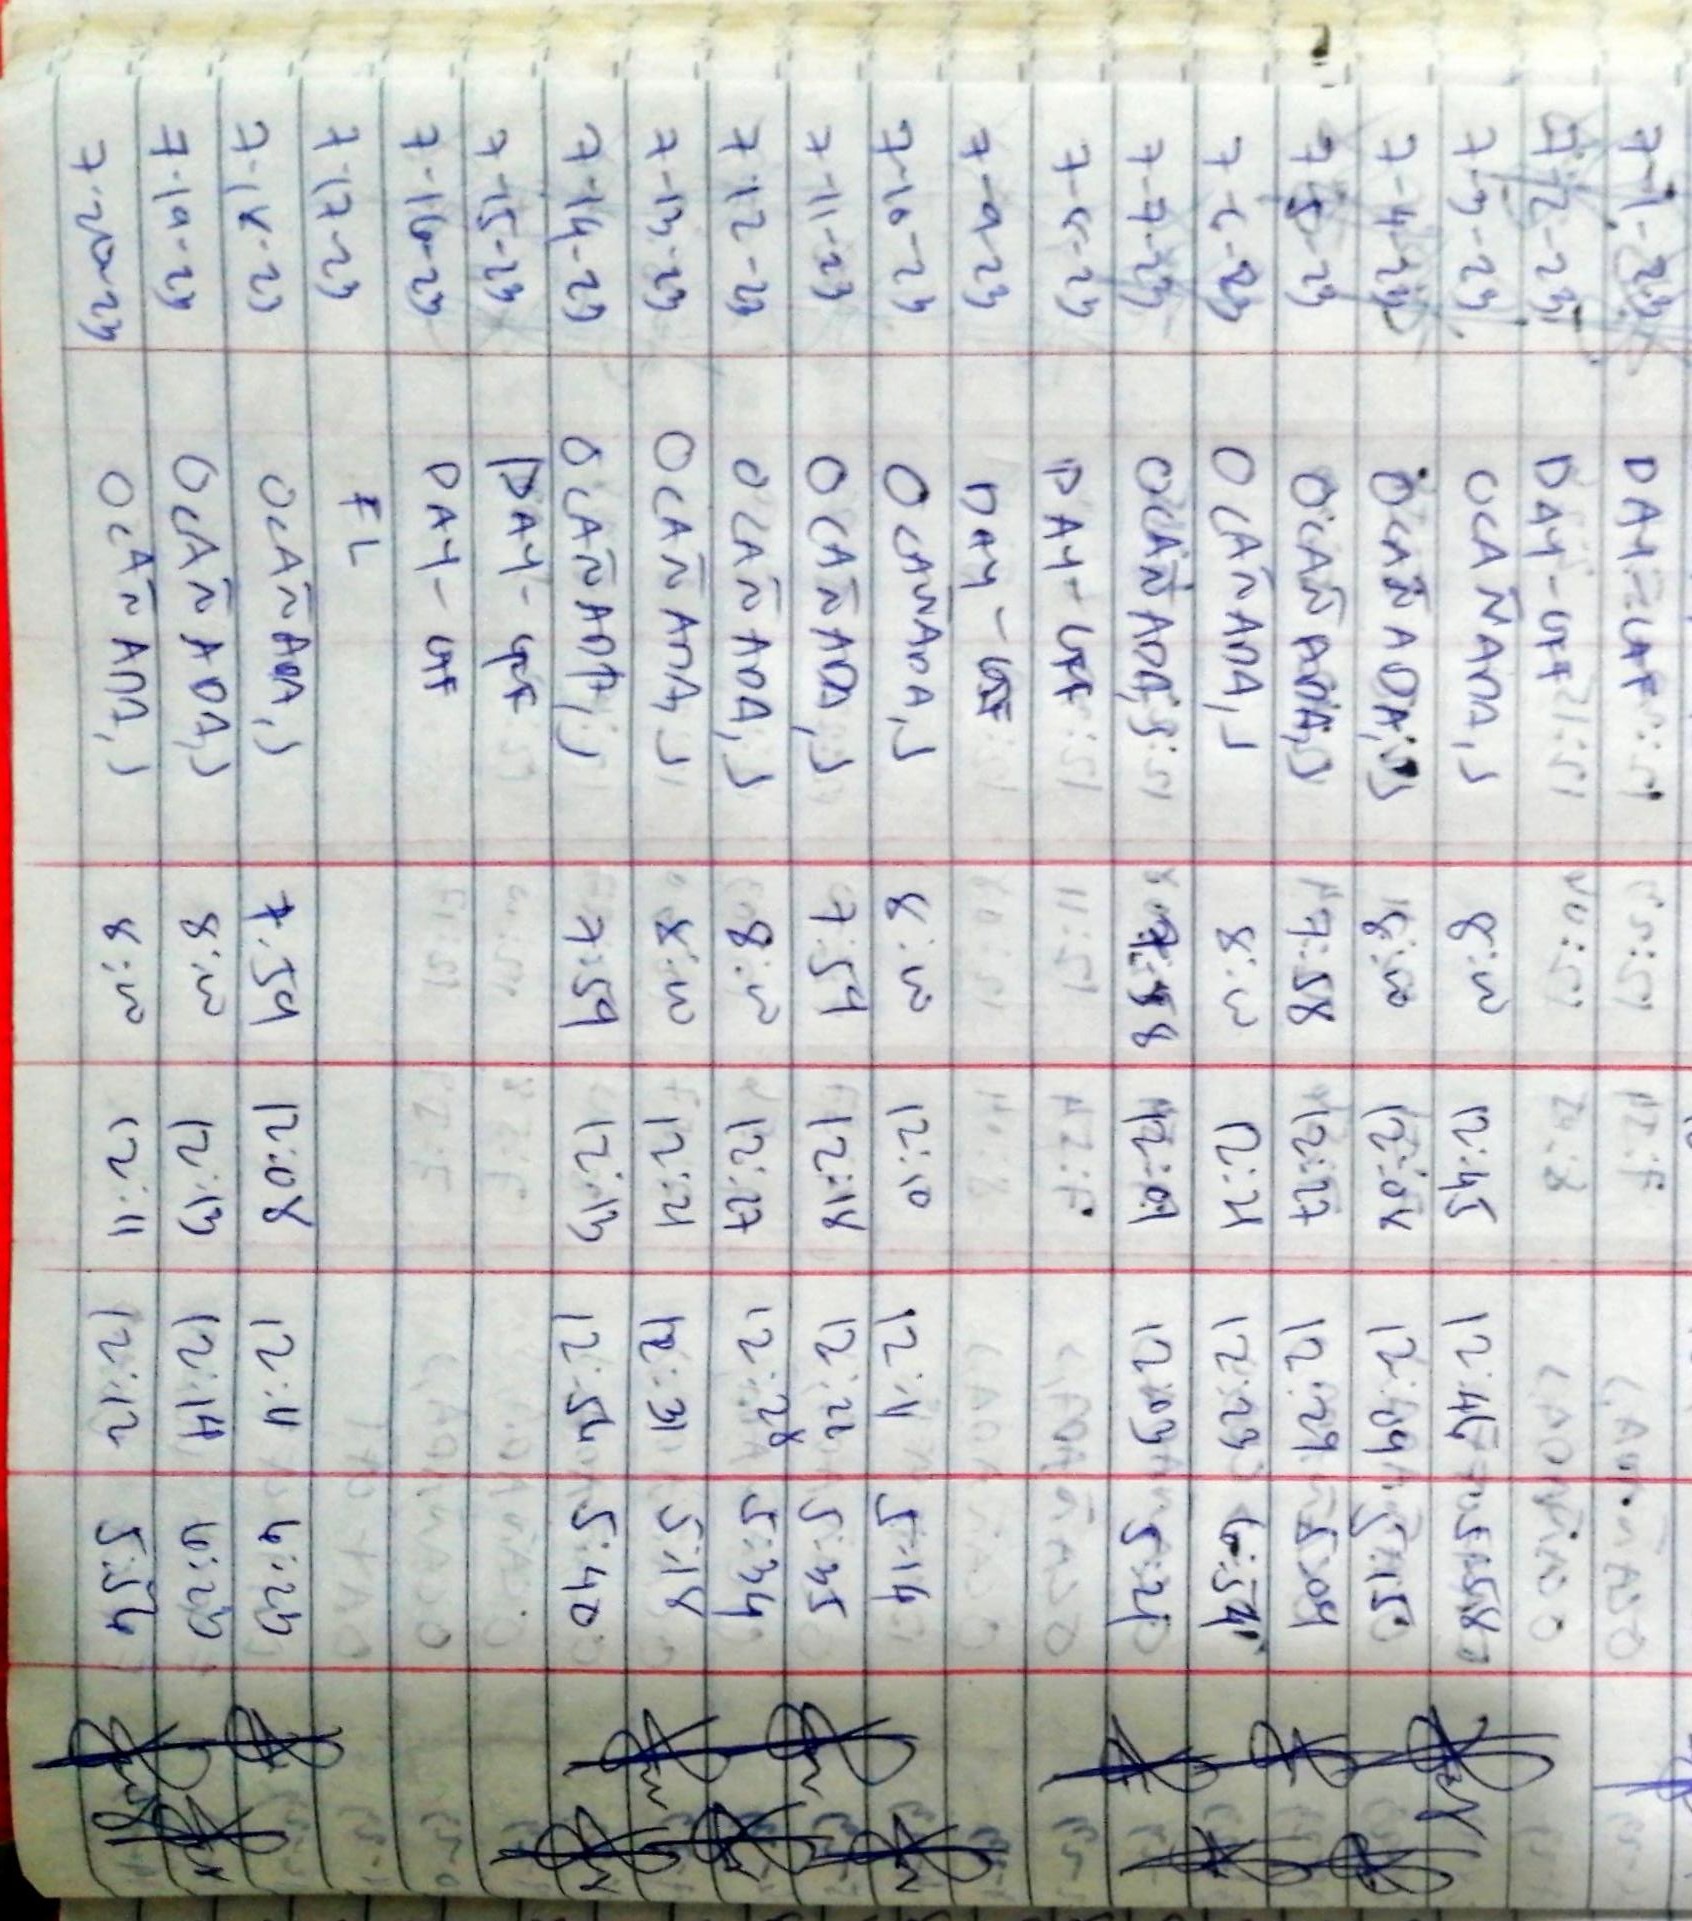 7-1-23 DAY-OFF
7-2-23 DAY-OFF
7-3-23 OCAÑADA, J 8:00 12:45 12:46 5:58
7-4-23 OCAÑADA, J 8:00 12:08 12:09 5:15
7-5-23 OCAÑADA, J 7:58 12:27 12:29 5:09
7-6-23 OCAÑADA, J 8:00 12:21 12:23 6:54
7-7-23 OCAÑADA, J 7:58 12:01 12:03 5:21
7-8-23 DAY-OFF
7-9-23 DAY-OFF
7-10-23 OCAÑADA, J 8:00 12:10 12:11 5:14
7-11-23 OCAÑADA, J 7:59 12:18 12:22 5:35
7-12-23 OCAÑADA, J 8:00 12:27 12:28 5:34
7-13-23 OCAÑADA, J 8:00 12:21 12:31 5:18
7-14-23 OCAÑADA, J 7:59 12:13 12:54 5:40
7-15-23 DAY-OFF
7-16-23 DAY-OFF
7-17-23 FL
7-18-23 OCAÑADA, J 7:59 12:08 12:11 6:23
7-19-23 OCAÑADA, J 8:00 12:13 12:14 6:20
7-20-23 OCAÑADA, J 8:00 12:11 12:12 5:54